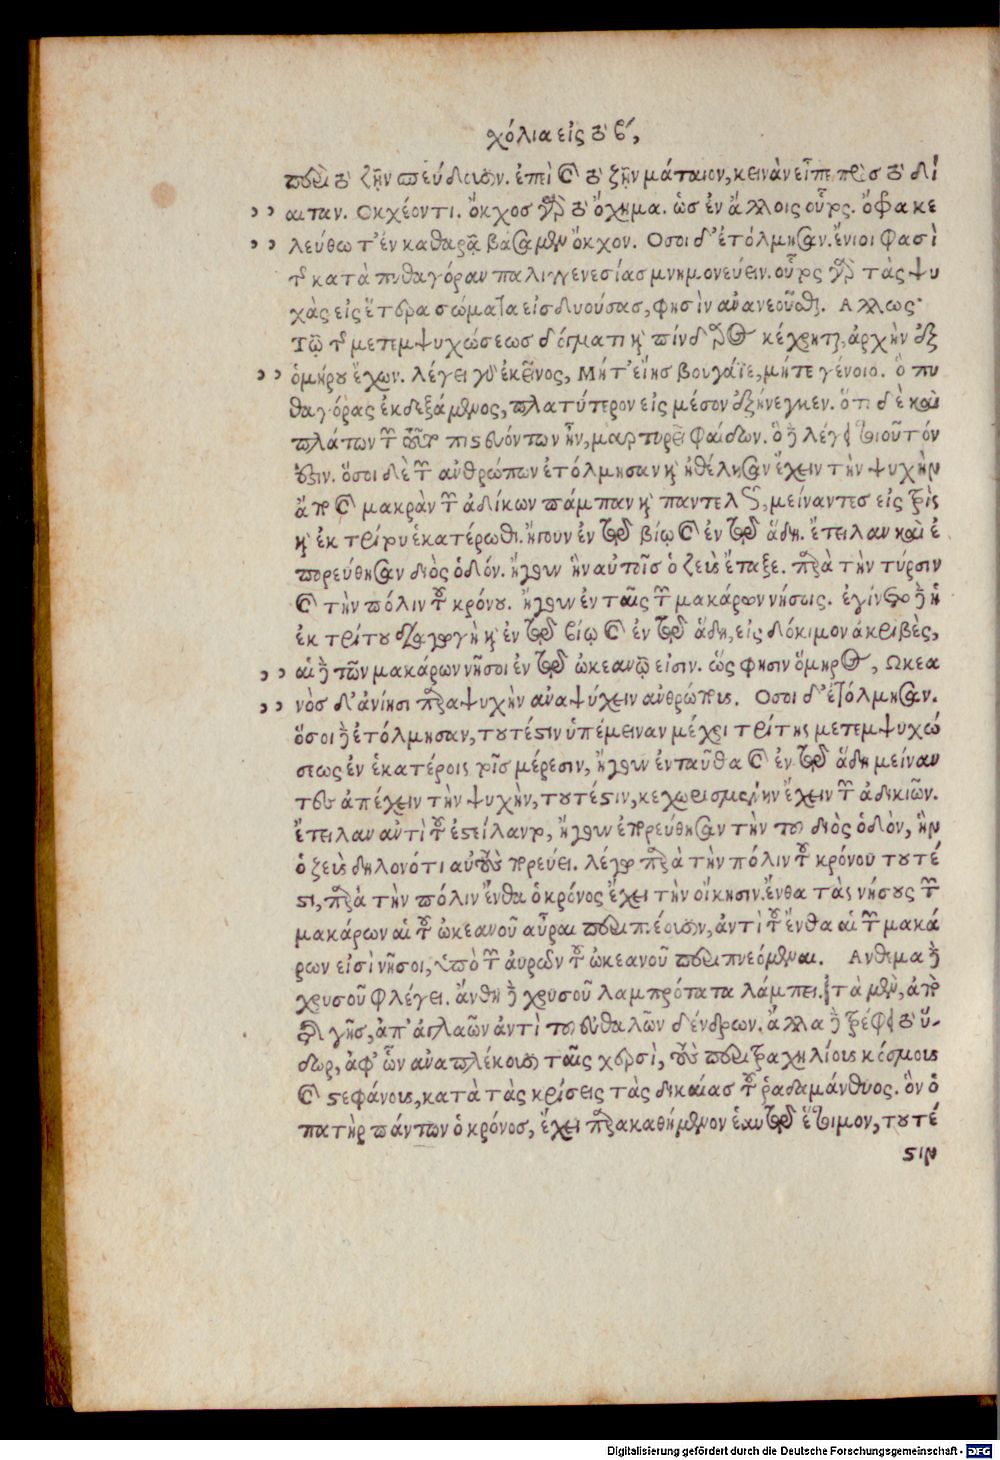 χόλια εἰς τὸ β´,
περὶ τὸ ζῆν σπεύδουσιν. ἐπεὶ καὶ τὸ ζῆν μάταιον, κεινὰν εἶπε πρὸς τὸ δί
αιταν. Οκχέοντι. ὄκχος γὰρ τὸ ὄχημα. ὡς ἐν ἄλλοις οὗτος. ὄφρα κε
λεύθῳ τ' ἐν καθαρᾷ βάσομεν ὄκχον. Οσοι δ' ἐτόλμησαν. ἔνιοι φασὶ
τῆς κατὰ πυθαγόραν παλιγγενεσίας μνημονεύειν. οὗτος γὰρ τὰς ψυ
χὰς εἰς ἕτερα σώματα εἰσδυούσας, φησὶν ἀνανεοῦσθαι. Αλλως
Τῷ τῆς μετεμψυχώσεως δόγματι καὶ πίνδαρος κέχρηται, ἀρχὴν ἐξ
ὁμήρου ἔχων. λέγει γὰρ ἐκεῖνος, Μήτ' εἴης βουγάϊε, μήτε γένοιο. ὃ πυ
θαγόρας ἐκδεξάμενος, πλατύτερον εἰς μέσον ἐξήνεγκεν. ὅτι δὲ καὶ
πλάτων τῶν οὕτω πιστευόντων ἦν, μαρτυρεῖ φαίδων. ὃ δὲ λέγει τοιοῦτόν
ἐστιν. ὅσοι δὲ τῶν ἀνθρώπων ἐτόλμησαν καὶ ἠθέλησαν ἔχειν τὴν ψυχὴν
ἄπο καὶ μακρὰν τῶν ἀδίκων πάμπαν καὶ παντελῶς, μείναντες εἰς τρὶς
καὶ ἐκ τρίτου ἑκατέρωθι. ἤγουν ἐν τῷ βίῳ καὶ ἐν τῷ ἅδῃ. ἔτειλαν καὶ ἐ
πορεύθησαν διὸς ὁδόν. ἤγουν ἣν αὐτοῖς ὁ ζεὺς ἔταξε. παρὰ τὴν τύρσιν
καὶ τὴν πόλιν τοῦ κρόνου. ἤγουν ἐν ταῖς τῶν μακάρων νήσοις. ἐγίνετο δὲ ἡ
ἐκ τρίτου διαγωγὴ καὶ ἐν τῷ βίῳ καὶ ἐν τῷ ἅδῃ, εἰς δόκιμον ἀκριβὲς,
αἱ δὲ τῶν μακάρων νῆσοι ἐν τῷ ὠκεανῷ εἰσιν. ὥς φησιν ὅμηρος, Ωκεα
νὸς δ' ἀνίησι παρὰ ψυχὴν ἀναψύχειν ἀνθρώπους. Οσοι δ' ἐτόλμησαν.
ὅσοι δὲ ἐτόλμησαν, τουτέστιν ὑπέμειναν μέχρι τρίτης μετεμψυχώ
σεως ἐν ἑκατέροις τοῖς μέρεσιν, ἤγουν ἐνταῦθα καὶ ἐν τῷ ἅδῃ μείναν
τες ἀπέχειν τὴν ψυχὴν, τουτέστιν, κεχωρισμένην ἔχειν τῶν ἀδικιῶν.
ἔτειλαν ἀντὶ τοῦ ἐστείλαντο, ἤγουν ἐπορεύθησαν τὴν τοῦ διὸς ὁδὸν, ἣν
ὁ ζεὺς δηλονότι αὐτοὺς πορεύει. λέγω παρὰ τὴν πόλιν τοῦ κρόνου τουτέ
στι, παρὰ τὴν πόλιν ἔνθα ὁ κρόνος ἔχει τὴν οἴκησιν. ἔνθα τὰς νήσους τῶν
μακάρων αἱ τοῦ ὠκεανοῦ αὖραι περιπνέουσιν, ἀντὶ τοῦ ἔνθα αἱ τῶν μακά
ρων εἰσὶ νῆσοι, ὑπὸ τῶν αὐρῶν τοῦ ὠκεανοῦ περιπνεόμεναι. Ανθεμα δὲ
χρυσοῦ φλέγει. ἄνθη δὲ χρυσοῦ λαμπρότατα λάμπει. τὰ μὲν, ἀπὸ
τῆς γῆς, ἀπ' ἀγλαῶν ἀντὶ τοῦ εὐθαλῶν δένδρων. ἄλλα δὲ τρέφει τὸ ὕ-
δωρ, ἀφ' ὧν ἀναπλέκουσι ταῖς χερσὶ, τοὺς περιτραχηλίους κόσμους
καὶ στεφάνους, κατὰ τὰς κρίσεις τὰς δικαίας τοῦ ῥαδαμάνθυος. ὃν ὁ
πατὴρ πάντων ὁ κρόνος, ἔχει παρακαθήμενον ἑαυτῷ ἕτοιμον, τουτέ
στιν
Digitalisierung gefördert durch die Deutsche Forschungsgemeinschaft - DFG